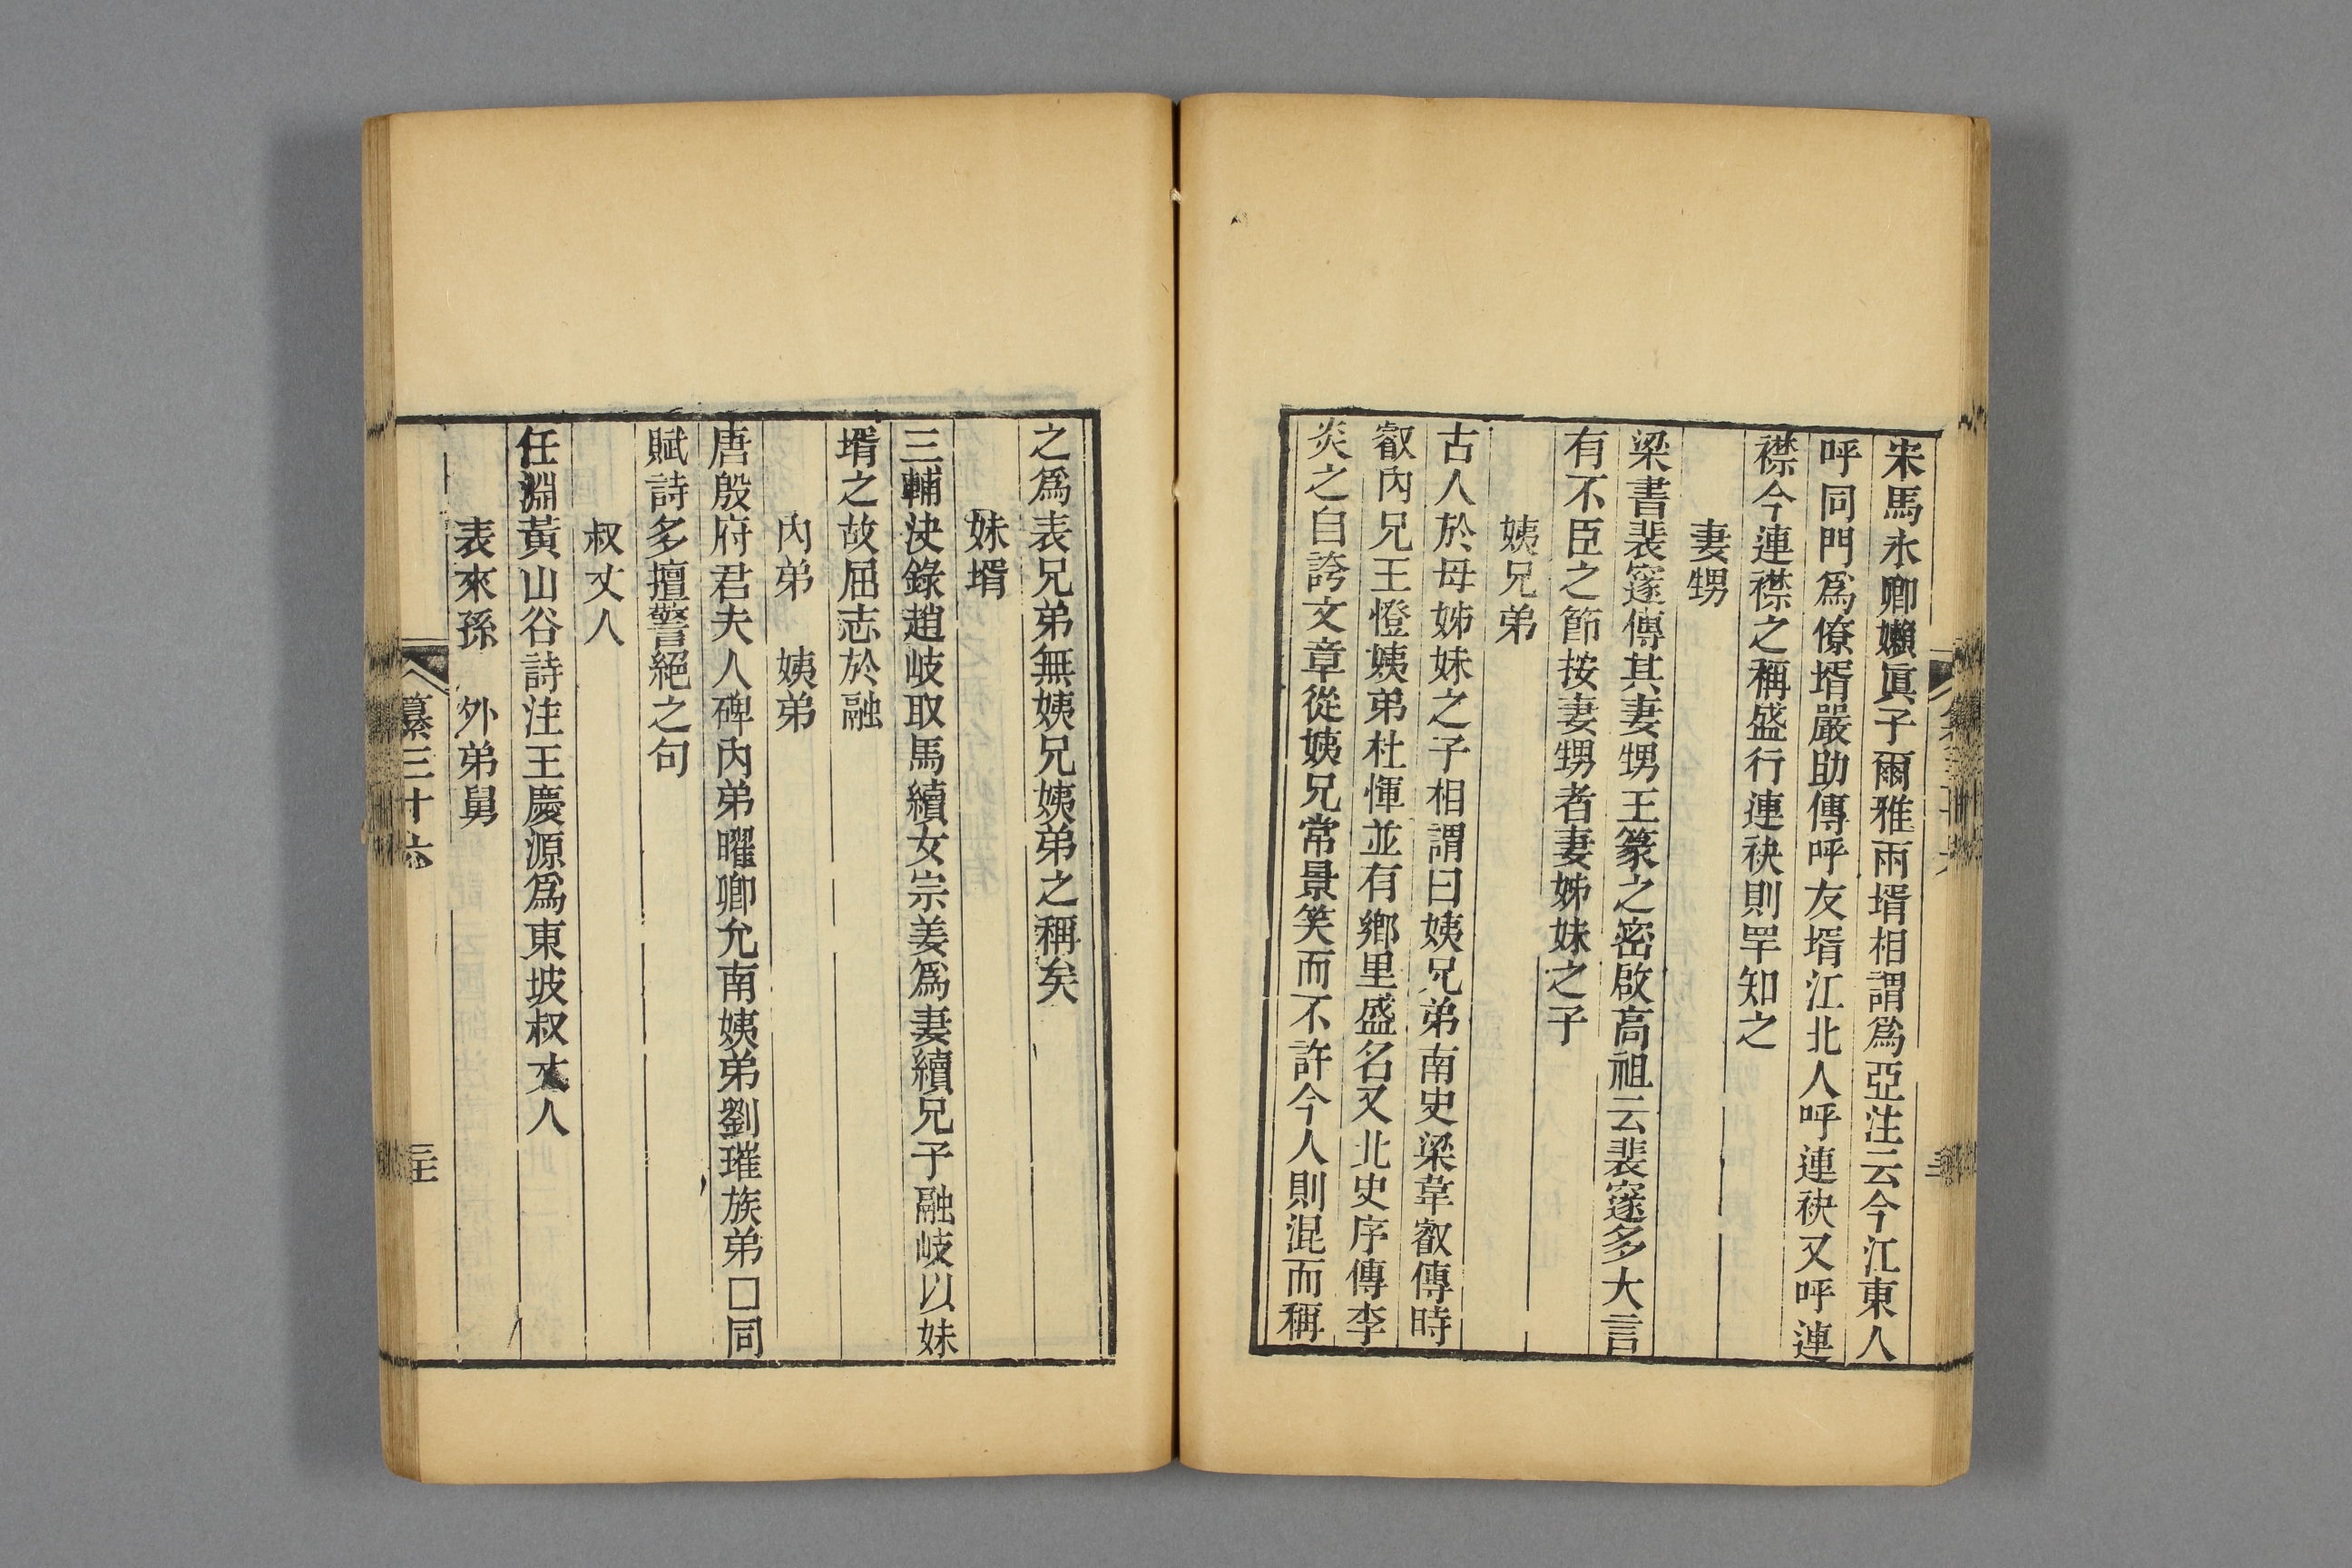 宋馬永卿嬾眞子爾雅兩壻相謂爲亞注云今江東人
呼同門爲僚壻嚴助傳呼友壻江北人呼連袂又呼連
襟今連襟之稱盛行連袂則罕知之
妻甥
梁書裴邃傳其妻甥王篆之密啟高祖云裴邃多大言
有不臣之節按妻甥者妻姊妹之子
姨兄弟
古人於母姊妹之子相謂曰姨兄弟南史梁韋叡傳時
叡內兄王憕姨弟杜惲並有鄉里盛名又北史序傳李
炎之自誇文章從姨兄常景笑而不許今人則混而稱
之爲表兄弟無姨兄姨弟之稱矣
妹壻
三輔決錄趙岐取馬續女宗姜爲妻續兄子融岐以妹
壻之故屈志於融
內弟 姨弟
唐殷府君夫人碑內弟曜卿允南姨弟劉璀族弟□同
賦詩多擅警絕之句
叔丈人
任淵黃山谷詩注王慶源爲東坡叔丈人
表來孫 外弟舅
纂三十六